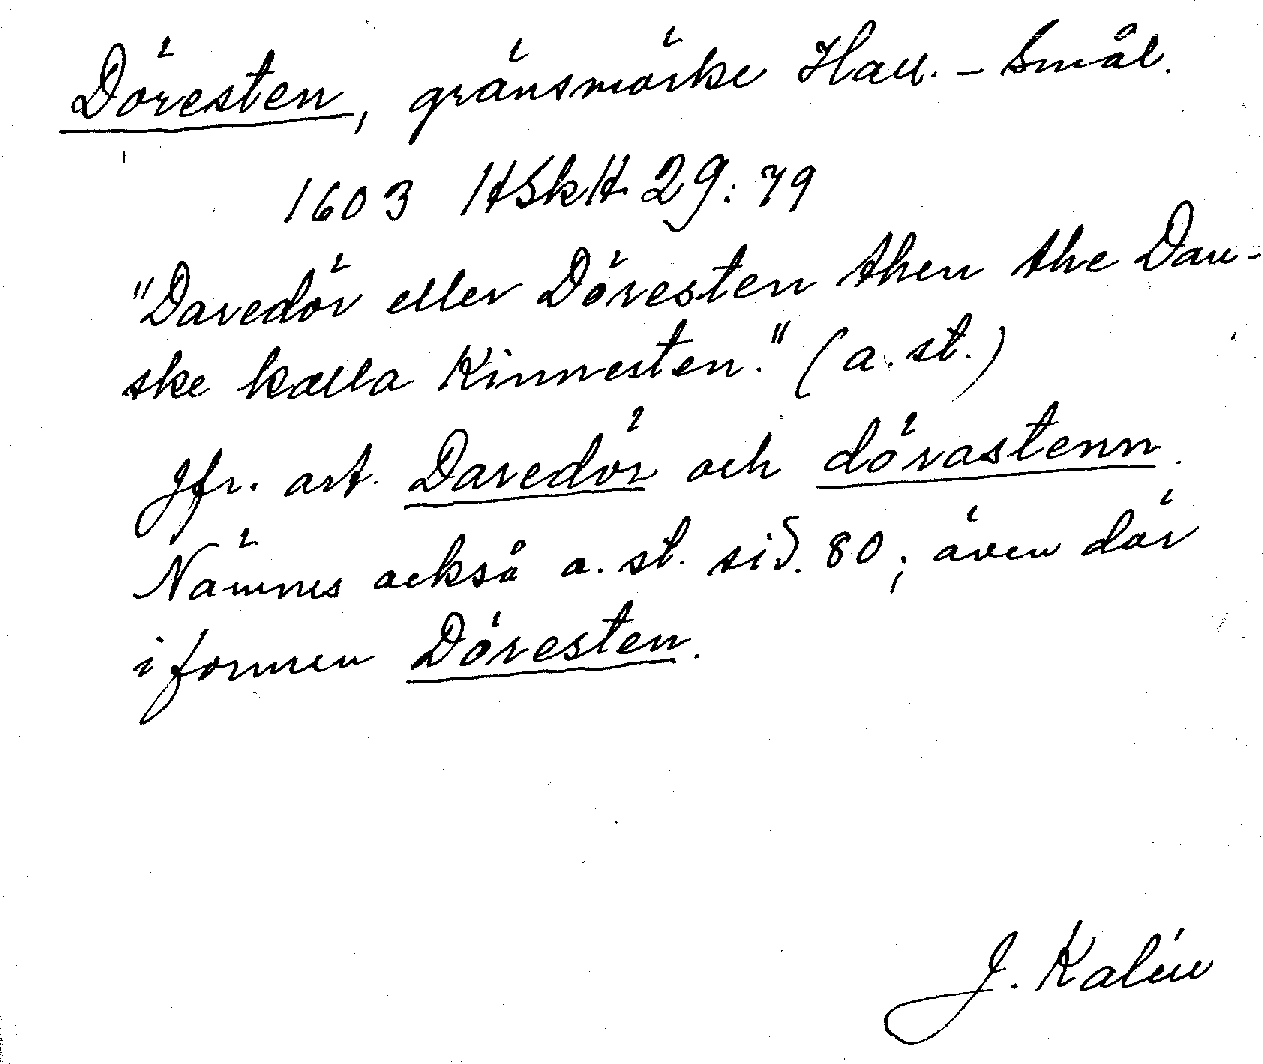 Döresten, gränsmärke Hall. - Smål.
1603 HSkH 29:79
"Daredör eller Döresten then the Dan-
ske kalla Kinnesten." (a. st.)
Jfr. art. Daredör och dörastenn.
Nämnes också a. st. sid. 80; även där
i formen Döresten.
J. Kalén